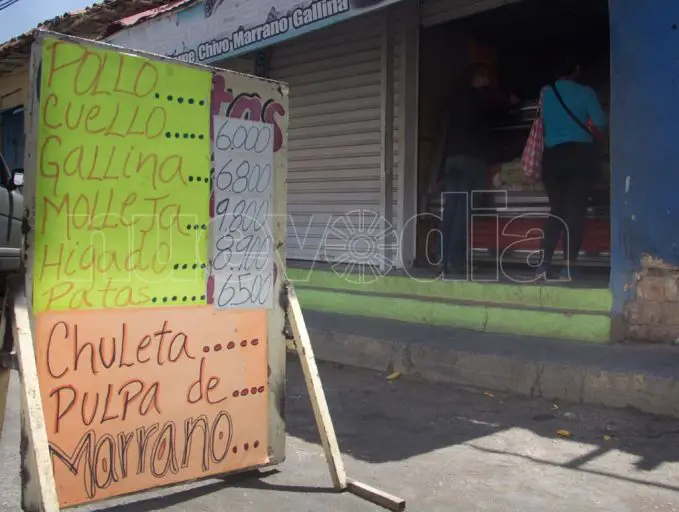 Chivo Marrano Gallina
POLLO.....
Cuello.....
Gallina...
Molleja...
Higado....
Patas.....
6.000
6.800
9.800
8.900
6.500
Chuleta.....
Pulpa de....
Marrano...
nuevodia